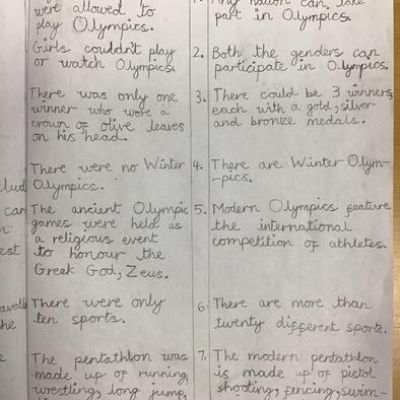 were allowed to
play Olympics.
Girls couldn't play
or watch Olympics.
There was only one
winner who wore a
crown of olive leaves
on his head.
There were no Winter
Olympics.
The ancient Olympic
games were held as
a religious event
to honour the
Greek God, Zeus.
There were only
ten sports.
The pentathlon was
made up of running,
wrestling, long jump,
Any nation can take
part in Olympics.
2. Both the genders can
participate in Olympics.
3. There could be 3 winners,
each with a gold, silver
and bronze medals.
4. There are Winter Olym-
-pics.
5. Modern Olympics feature
the international
competition of athletes.
6. There are more than
twenty different sports.
7. The modern pentathlon
is made up of pistol
shooting, fencing, swim-